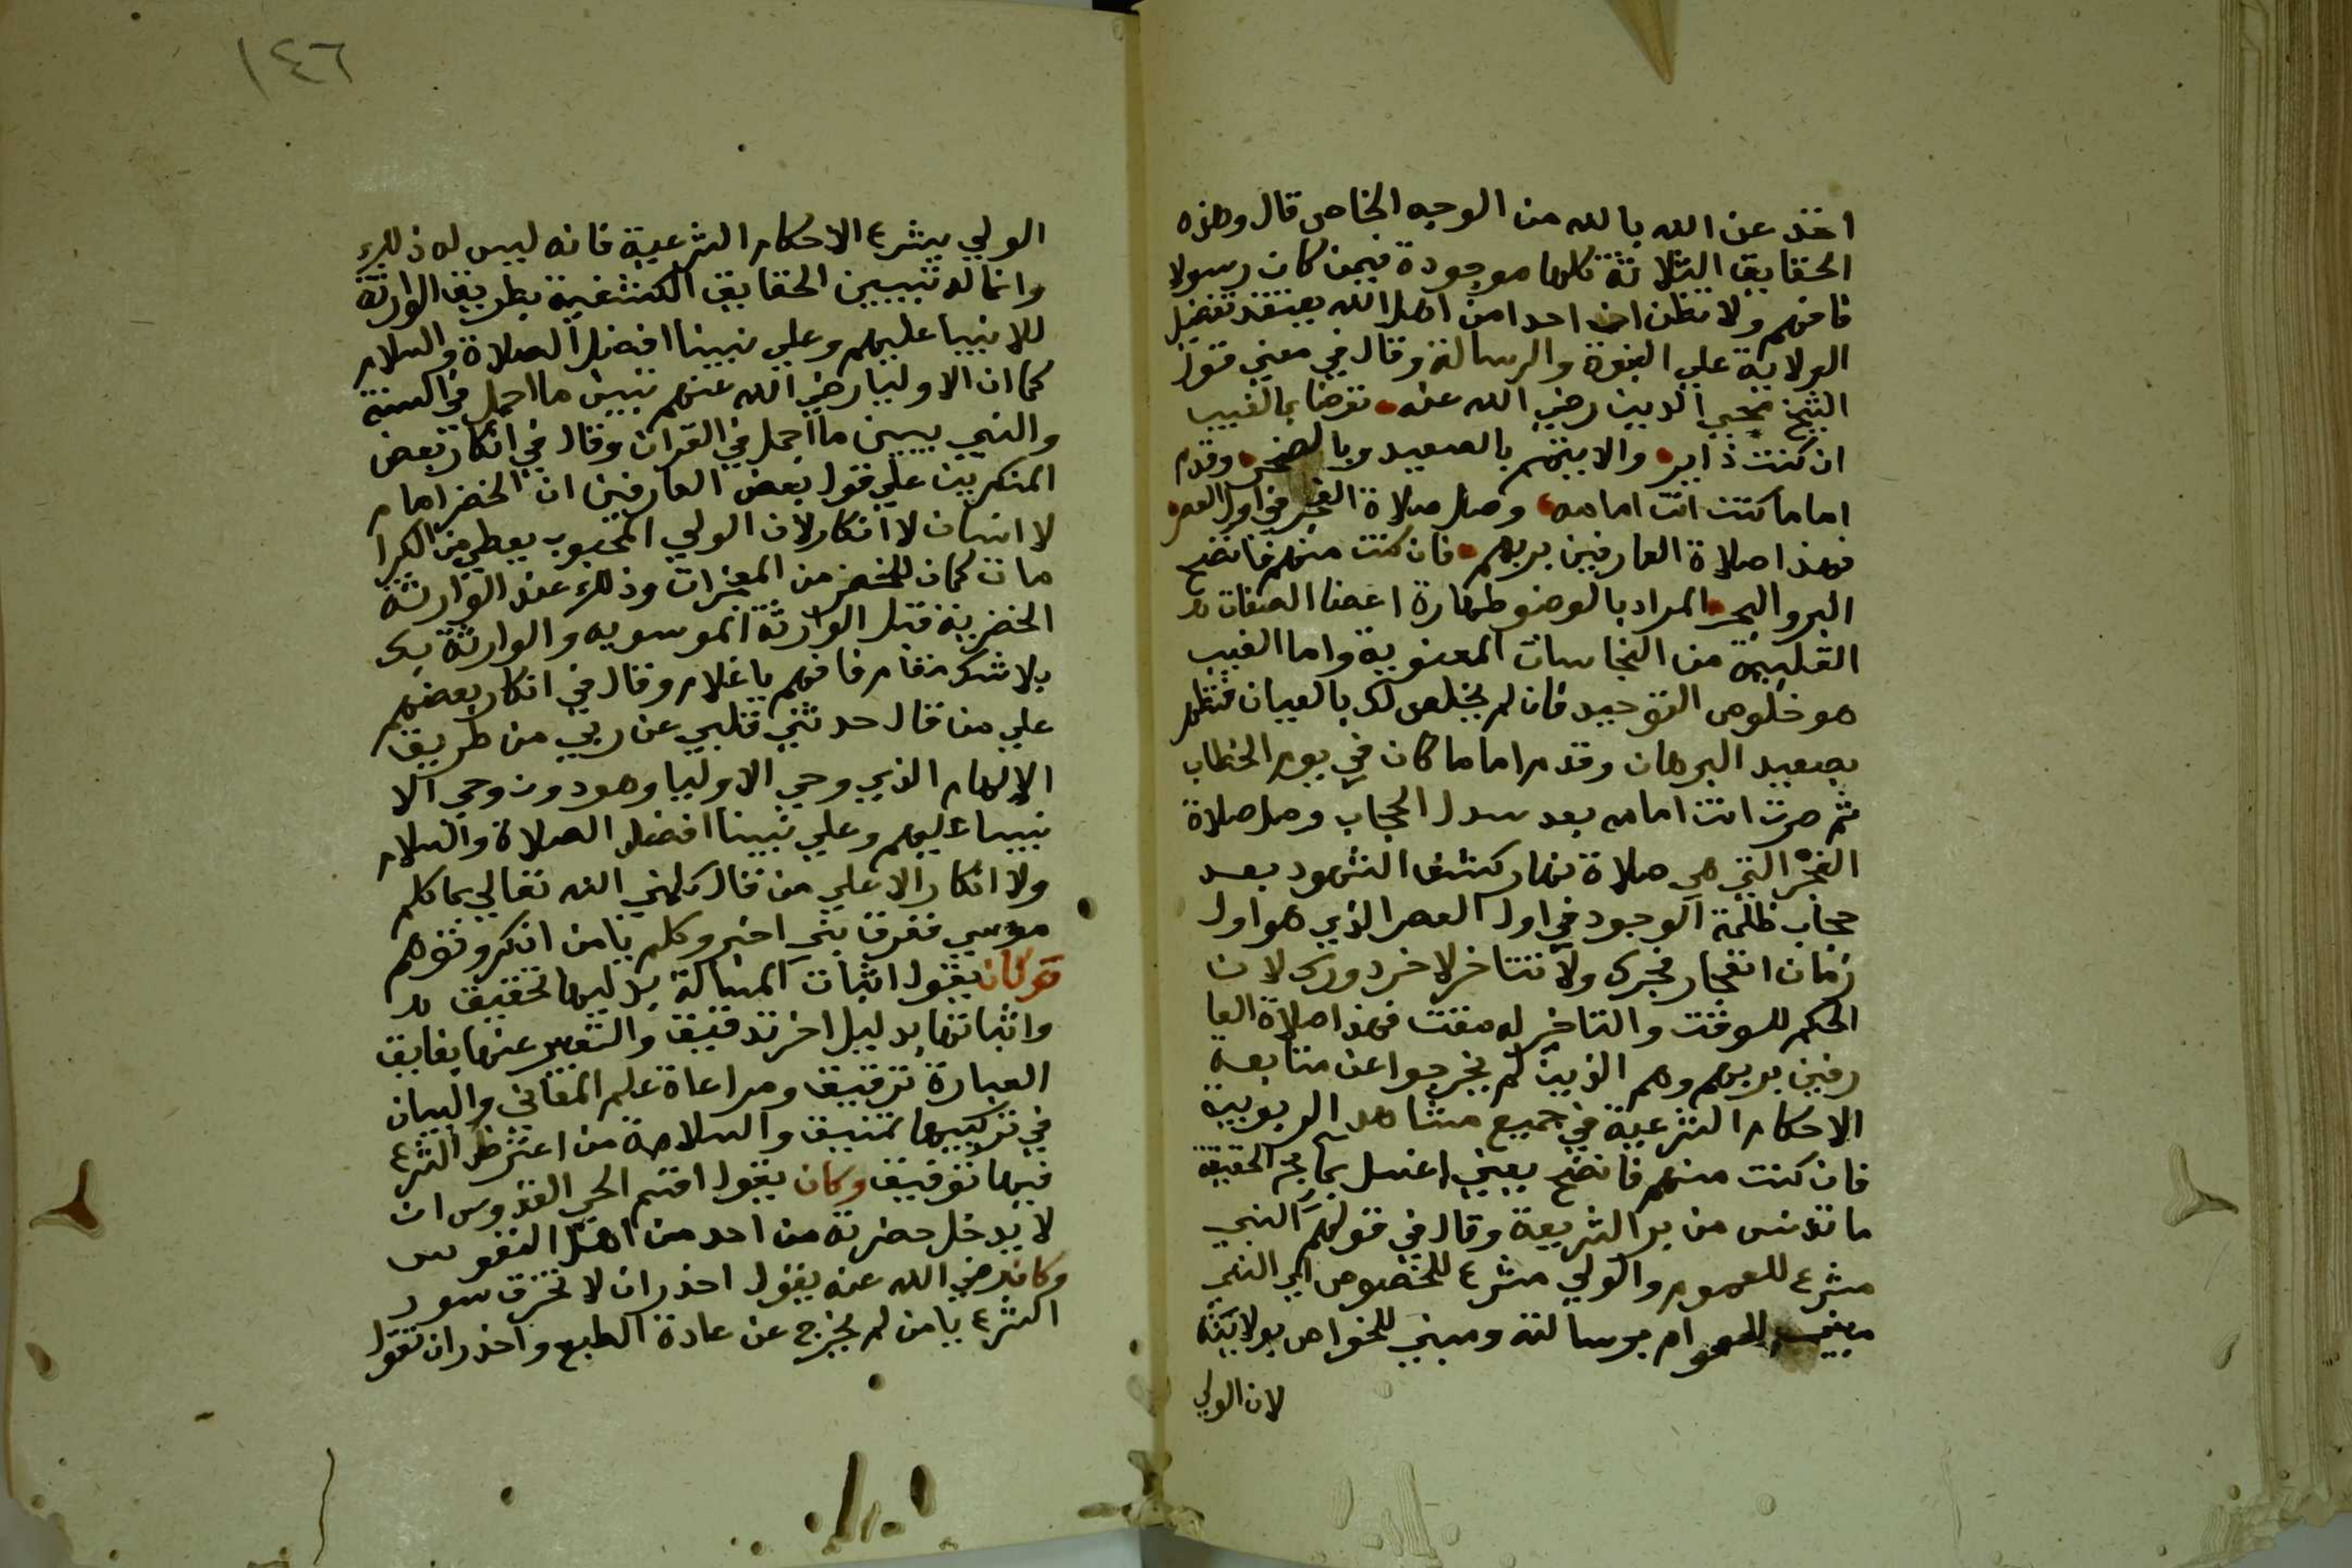 اخذ عن الله بالله من الوجه الخاص قال وهذه
الحقايق الثلاثة كلها موجودة فيمن كان رسولا
فافهم ولا تظن ان احدا من اهل الله يعتقد تفضيل
الولاية علي النبوة والرسالة وقال في معني قول
الشيخ محيي الدين رضي الله عنه توضا بما الغيب
ان كنت ذا سر والا تيمم بالصعيد وبالصخر وقدم
اماما كنت انت امامه وصل صلاة الفجر في اول العصر
فهذا صلاة العارفين بربهم فان كنت منهم فانضح
البر والبحر المراد بالوضو طهارة اعضا الصفات
القلبية من النجاسات المعنوية واما الغيب
هو خلوص التوحيد فان لم يخلص لك بالعيان فتطهر
بصعيد البرهان وقدم اماما كان في يوم الخطاب
ثم صرت انت امامه بعد سدل الحجاب وصل صلاة
الفجر التي هي صلاة نهار كشف الشهود بعد
حجاب ظلمة الوجود في اول العصر الذي هو اول
زمان انفجار فجرك ولا تتاخر لاخر دورك لان
الحكم للوقت والتاخير له مقت فهذا صلاة العا
رفين بربهم وهم الذين لم يخرجوا عن متابعة
الاحكام الشرعية في جميع مشاهد الربوبية
فان كنت منهم فانضح يعني اغسل بما بحر الحقيقة
ما تدنس من بر الشريعة وقال في قولهم النبي
مشرع للعموم والولي مشرع للخصوص اي النبي
مبين للعوام برسالته ومبني للخواص بولايته
لان الولي
١٤٦
الولي يشرع الاحكام الشرعية فانه ليس له ذلك
وانما له تبيين الحقايق الكشفية بطريق الوارثة
للانبيا عليهم وعلي نبينا افضل الصلاة والسلام
كما ان الاوليا رضي الله عنهم تبين ما اجمل في السنة
والنبي يبين ما اجمل في القران وقال في انكار بعض
المنكرين علي قول بعض العارفين ان الخضر امام
لا انسان لا انكار لان الولي المحبوب يعطي من الكرا
مات كمان للخضر من المعجزات وذلك عند الوارثة
الخضرية قبل الوارثة الموسويه والوارثة
بلا شك مقام فافهم يا غلام وقال في انكار بعضهم
علي من قال حدثني قلبي عن ربي من طريق
الالهام الذي وحي الاوليا وهو دون وحي الا
نبيا عليهم وعلي نبينا افضل الصلاة والسلام
ولا انكار الا علي من قال كلمني الله تعالي بما كلم
موسي ففرق بين اخبر وكلم يا من انكر وتوهم
وكان يقول اثبات المسالة بدليلها تحقيق
واثباتها بدليل اخر تدقيق والتعبير عنها بفايق
العبارة ترقيق ومراعاة علم المعاني والبيان
في تركيبها تنميق والسلامة من اعتراض الشرع
فيها توفيق وكان يقول اقسم الحي القدوس ان
لا يدخل حضرته من احد من اهل النفوس
وكان رضي الله عنه يقول احذر ان لا تخرق سور
الشرع يا من لم يخرج عن عادة الطبع واحذر ان تقول